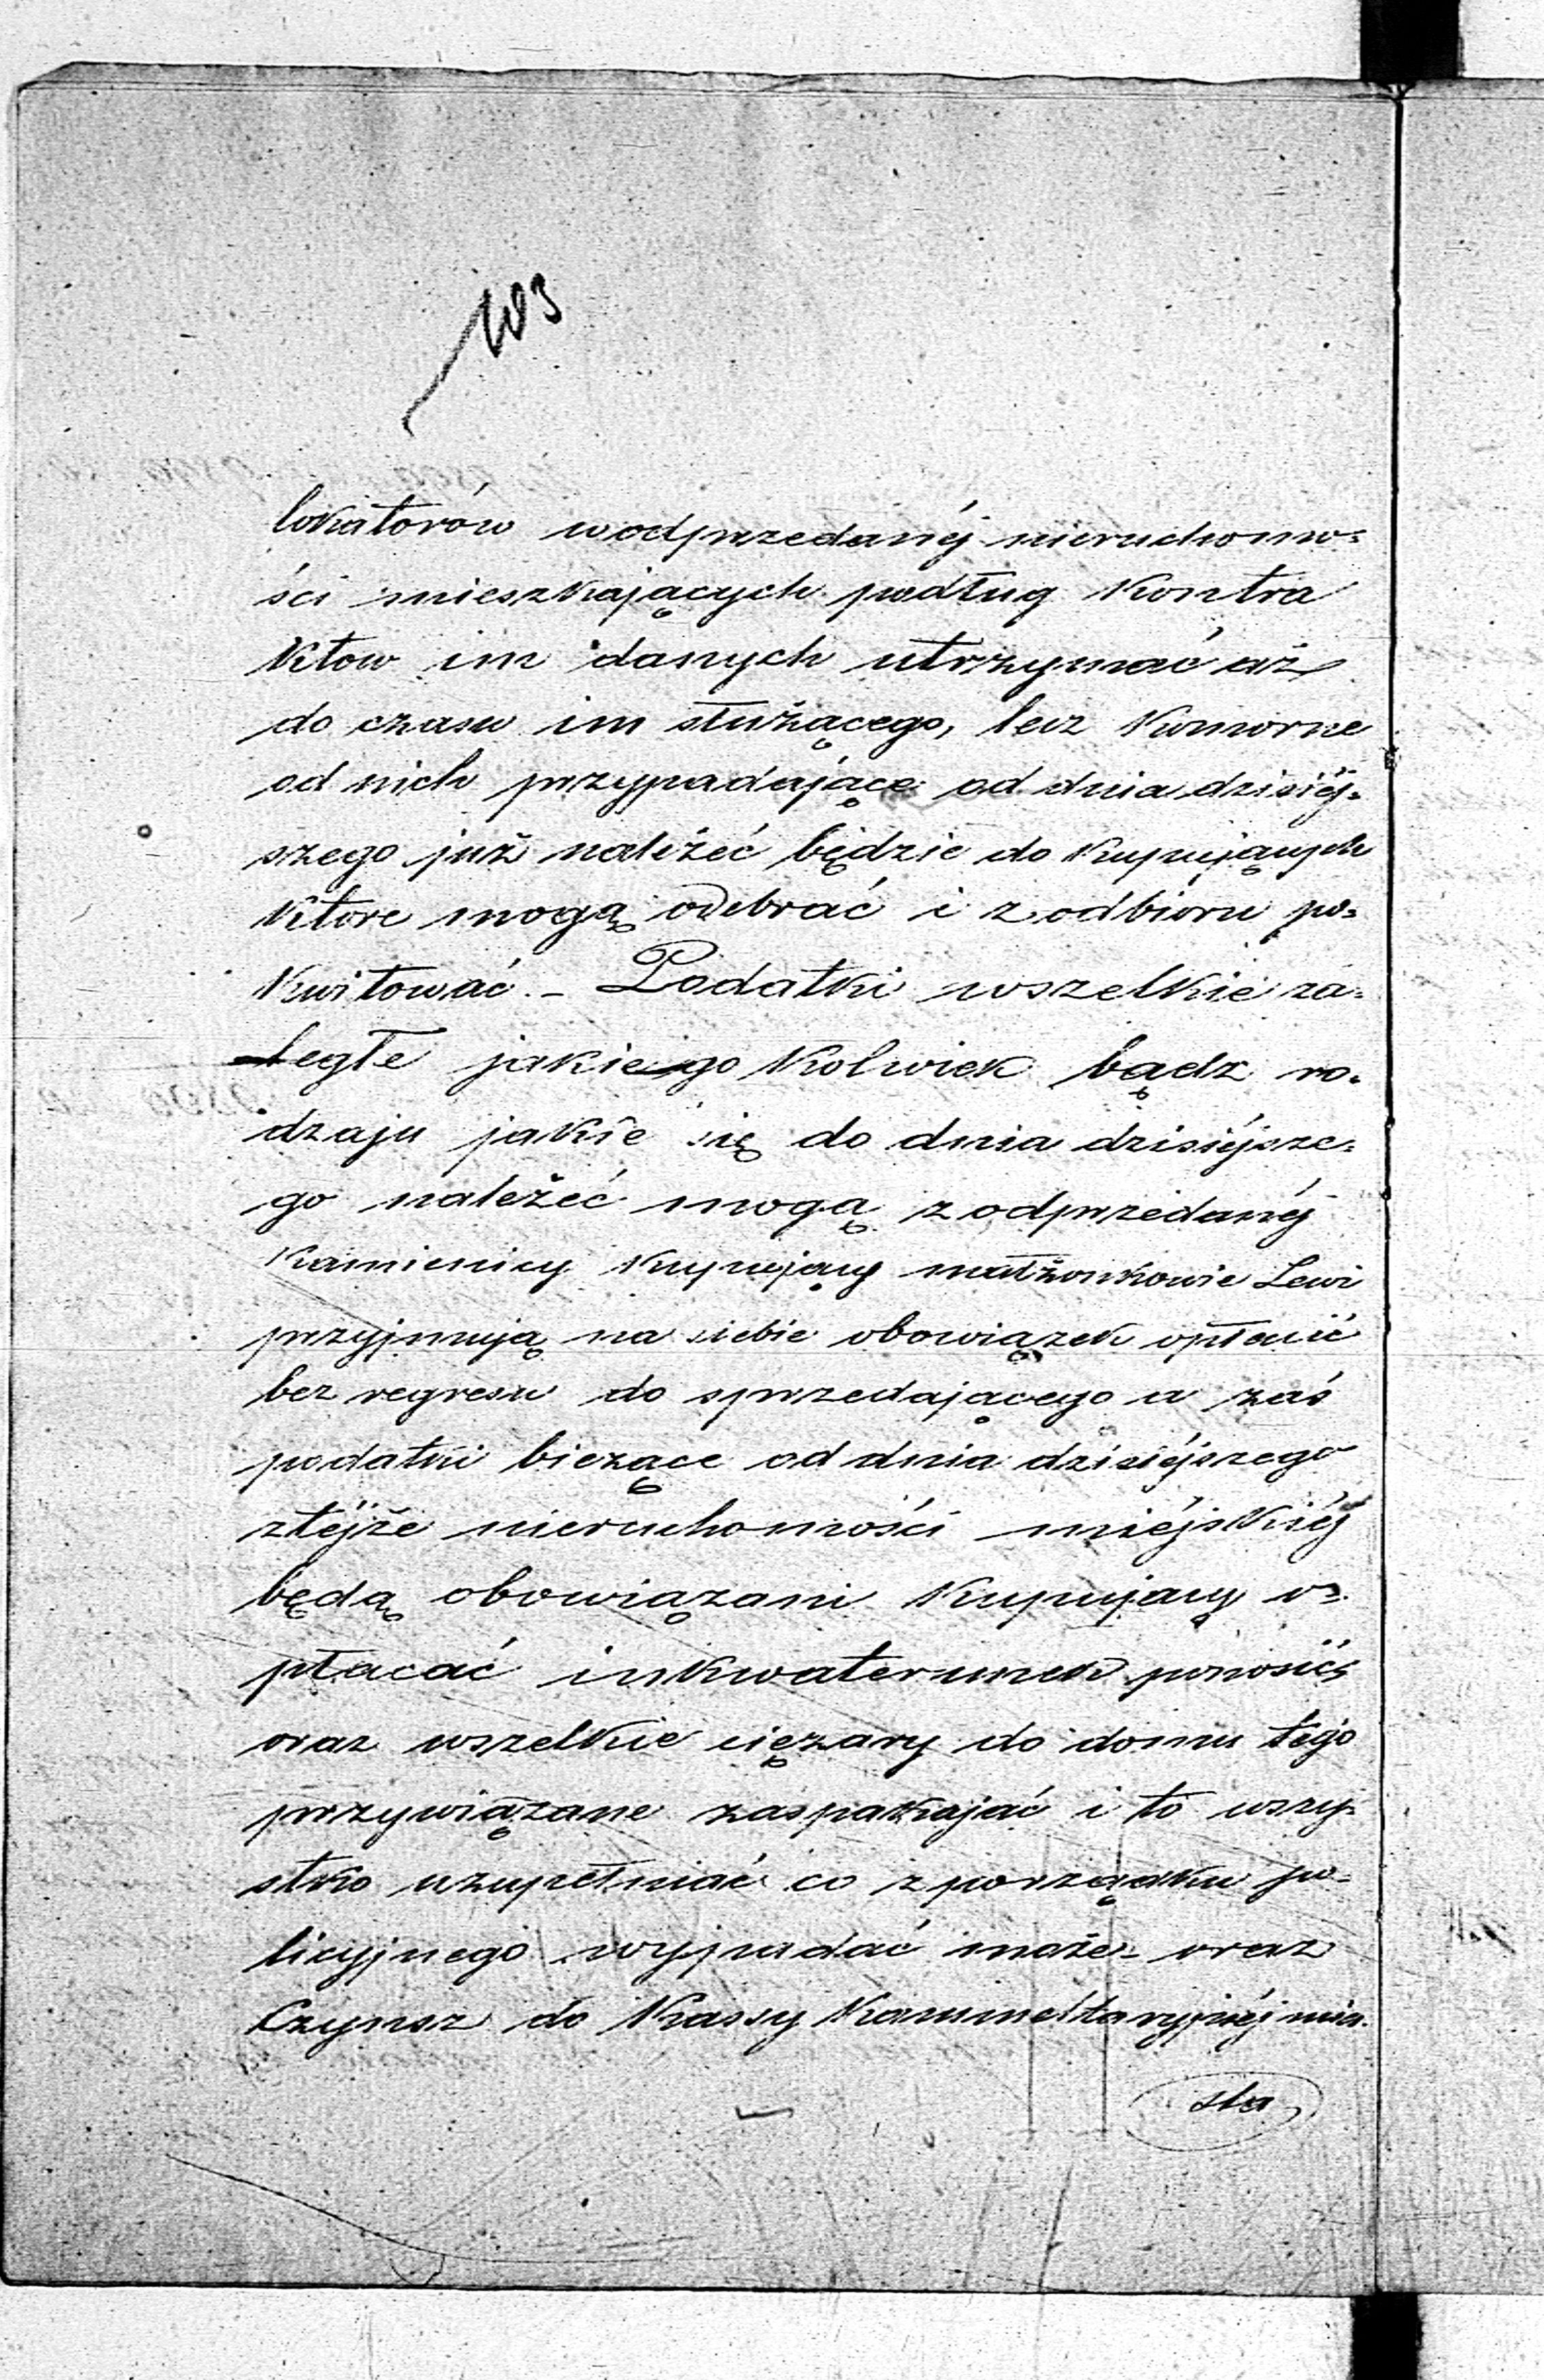 103
lokatorów wodprzedanéj nieruchomo=
ści mieszkających podług Kontra
Ktow im danych utrzymać aż
do czasu im służącego, lecz Komorne
od nich przypadające od dnia dzisiéj=
szego już należéć będzie do Kupujących
Ktore mogą odebrać i z odbioru po=
Kwitować. – Podatki wszelkie za=
ległe jakiego Kolwiek bądz ro=
dzaju jakie się do dnia dzisiéjsze=
go należéć mogą z odprzedanéj
Kamienicy Kupujący małżonkowie Lewi
przyjmują na siebie obowiązek opłacić
bez regresu do sprzedającego a zaś
podatki biezące od dnia dzisiéjszego
ztéjże nieruchomości miéjskiéj
będą obowiązani Kupujący o=
płacać inkwaterunek ponosić,
oraz wszelkie ciężary do domu tego
przywiązane zaspakajać i to wszy=
stko uzupełniać co z porządku po=
licyjnego wypadać może – oraz
Czynsz do Kassy Kammeltaryjnéj mia=
sta,